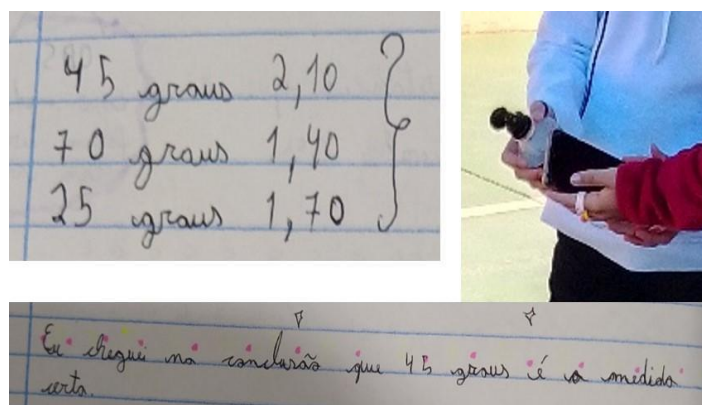 45 graus 2,10
70 graus 1,40
25 graus 1,70
Eu cheguei na conclusão que 45 graus é a medida
certa.